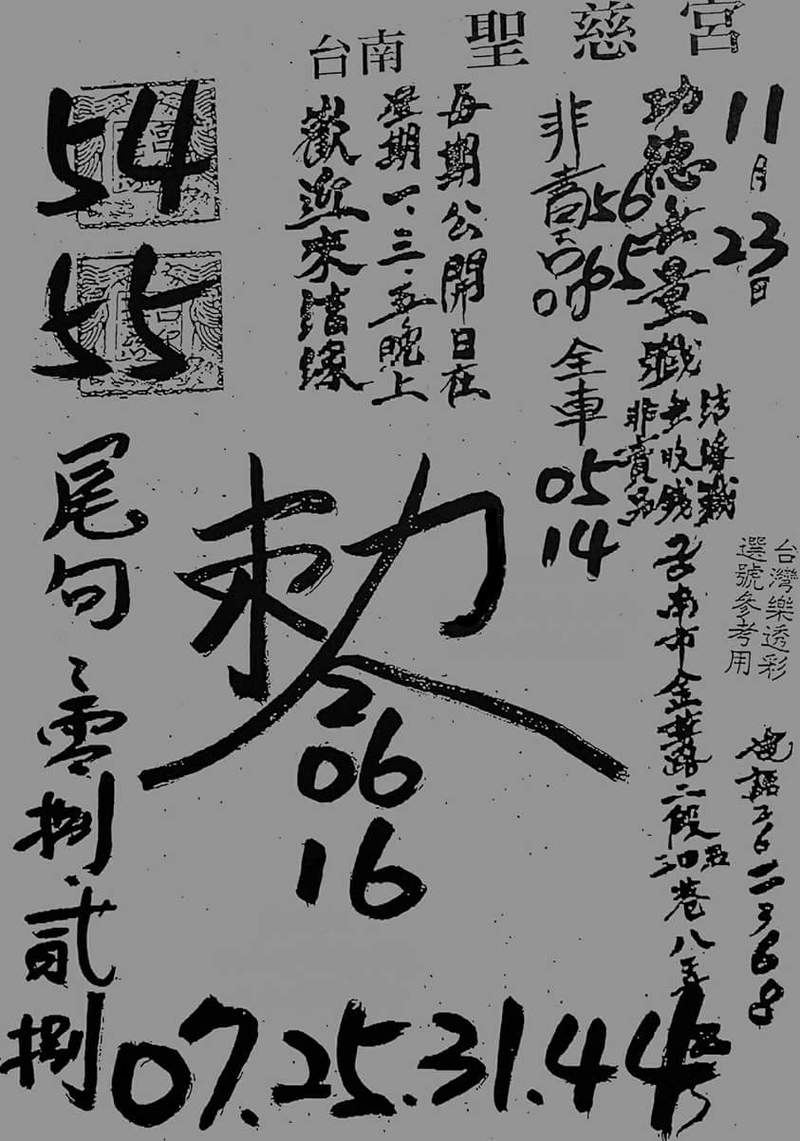 台南 聖慈宮
11月23日
功德無量
結緣
無收錢
非賣品
台灣樂透彩
選號參考用
非賣品
56
06
5
全車
05
14
每期公開日在
星期一、三、五晚上
歡迎來結緣
54
55
尾句
零捌
貳捌
敕令
06
16
台南市金華路二段
巷八
電話
07.25.31.44